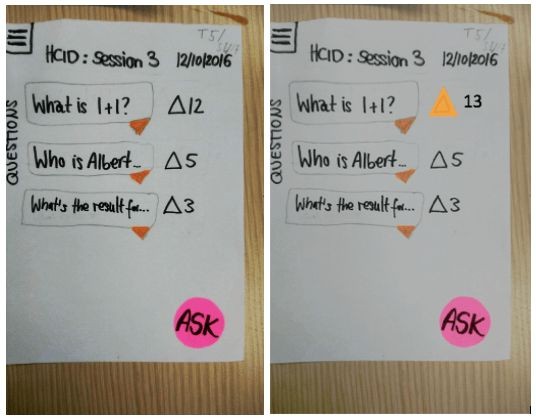 T5/
HCID: Session 3 12/10/2016
QUESTIONS
What is 1+1? 12
Who is Albert... 5
What's the result for... 3
ASK
T5/
HCID: Session 3 12/10/2016
QUESTIONS
What is 1+1? 13
Who is Albert... 5
What's the result for... 3
ASK